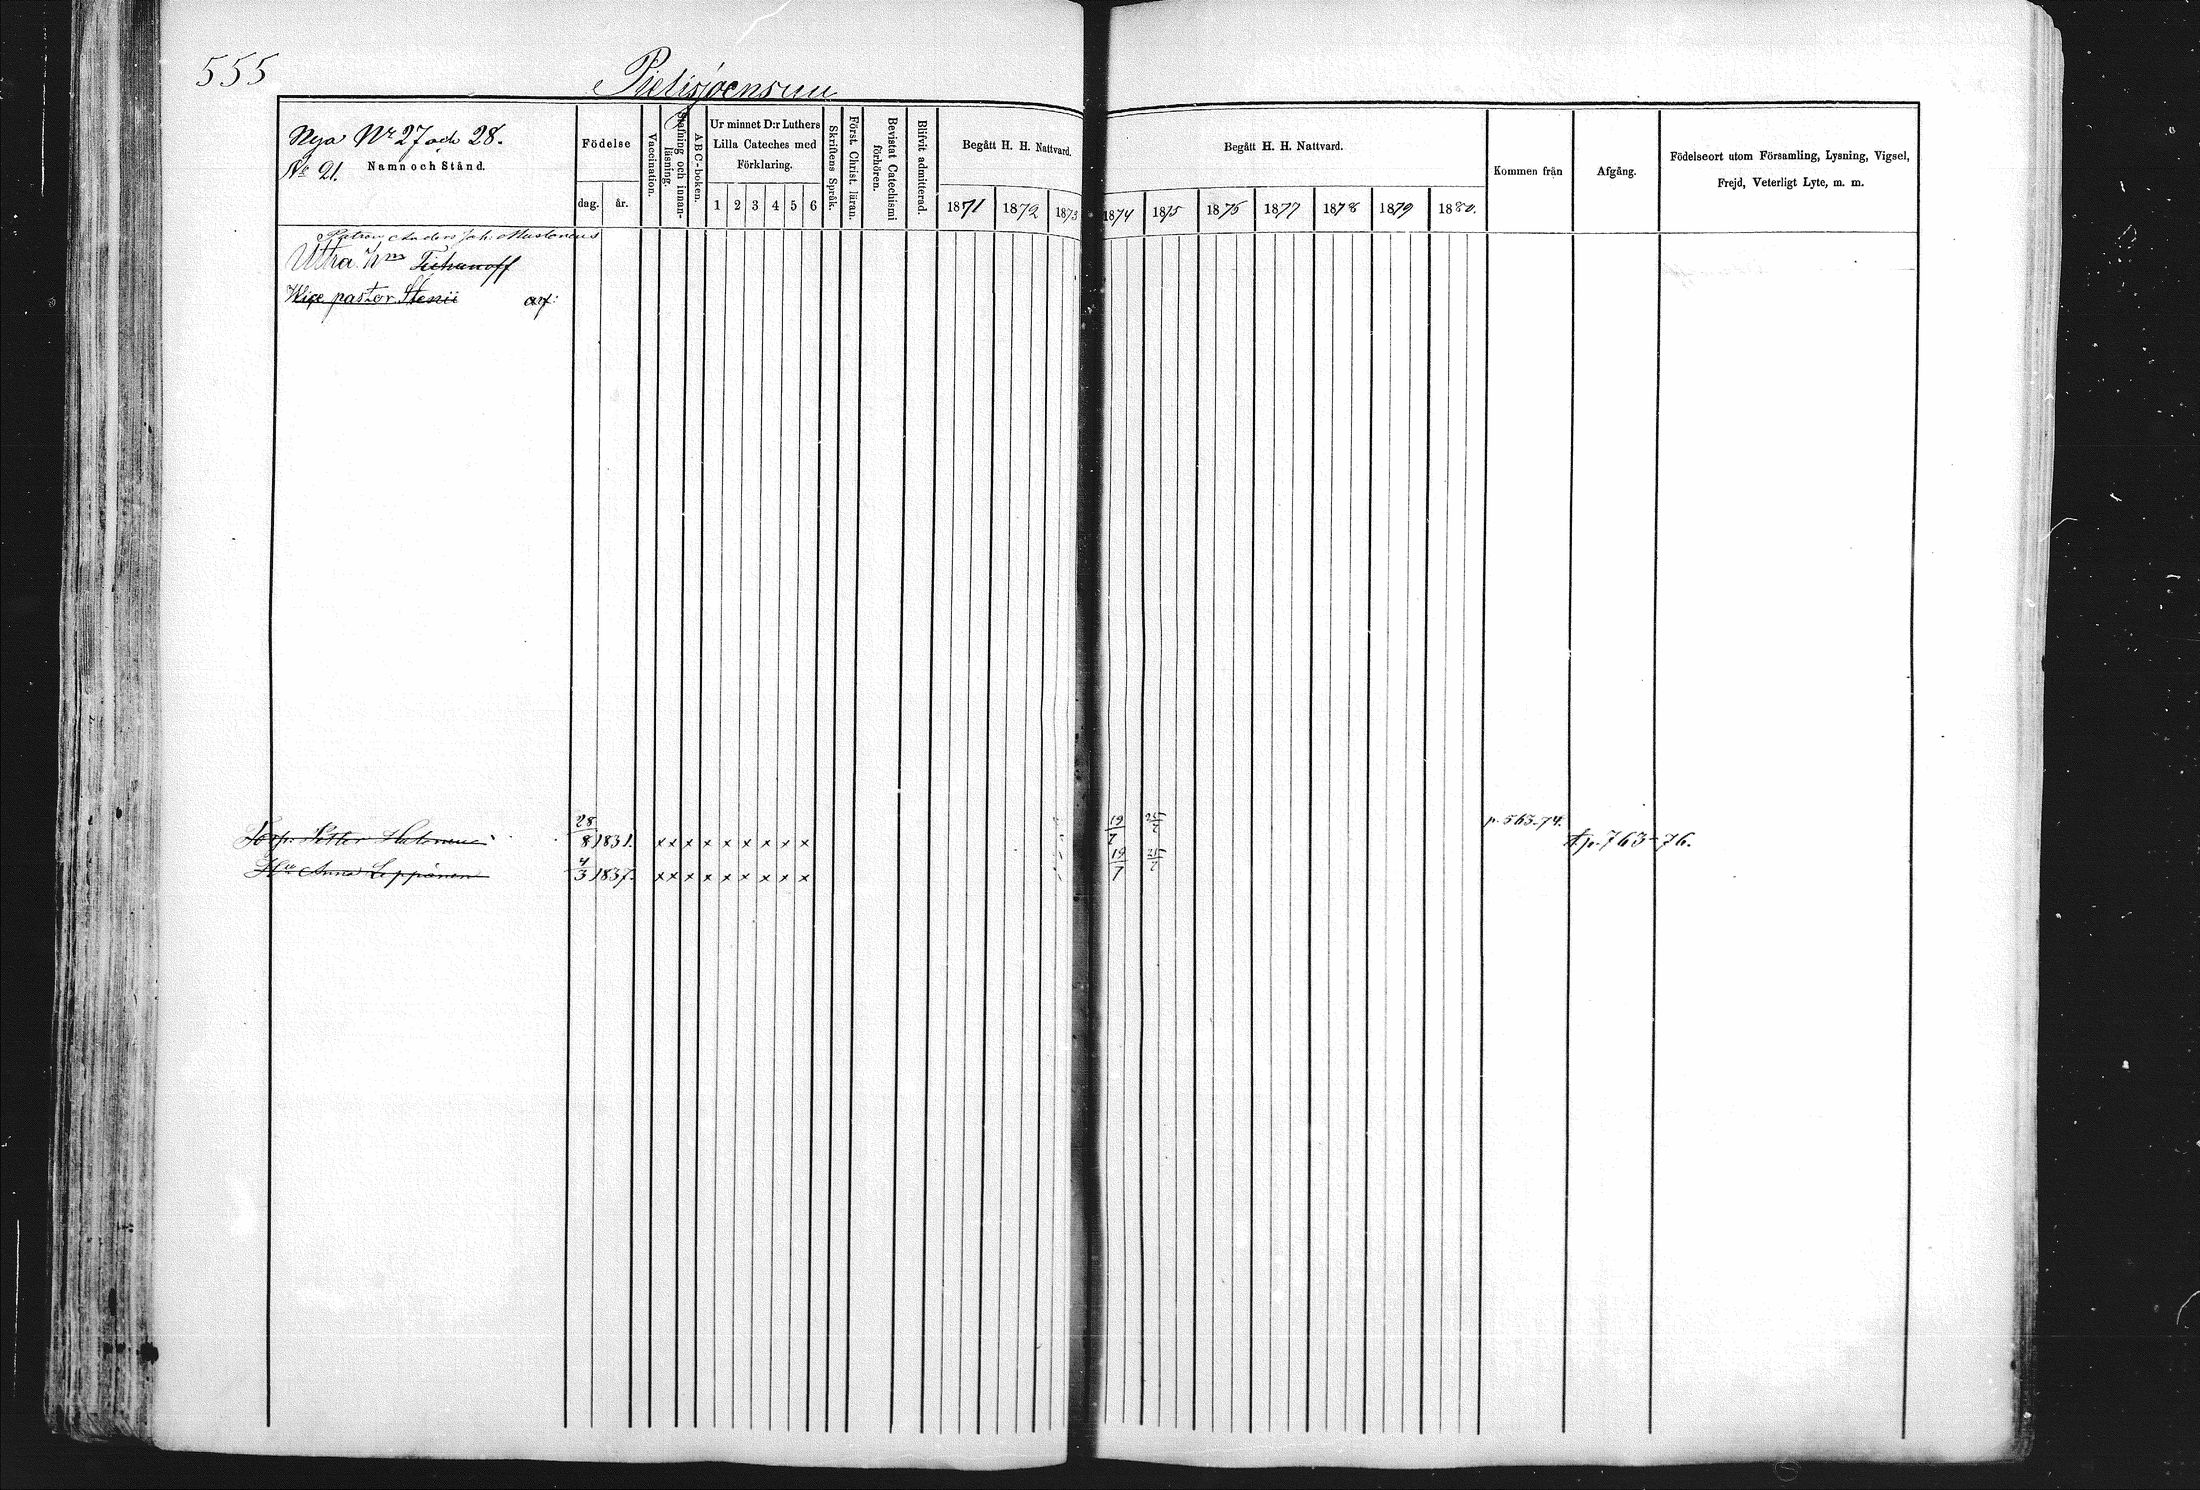 555
Pielisjoensuu
Nya Nr 27 och 28.
No 21.
Namn och Stånd.
Födelse
dag.
år.
Vaccination.
Stafning och innanläsning.
ABC-boken.
Ur minnet D:r Luthers
Lilla Cateches med
Förklaring.
1 2 3 4 5 6
Skriftens Språk.
Först. Christ. läran.
Bevistat Catechismi
förhören.
Blifvit admitterad.
Begått H. H. Nattvard.
1871 1872 1873
Begått H. H. Nattvard.
1874 1875 1876 1877 1878 1879 1880.
Kommen från
Afgång.
Födelseort utom Församling, Lysning, Vigsel,
Frejd, Veterligt Lyte, m. m.
Patron Anders Joh. Mustonens
Utra
Tichanoff
Wice pastor Stenii arf:
Petter 28/8 1831. × × × × × × × × × 19/7 25/2 p. 563-74. p. 763-76.
Hu Anna Leppänen 4/3 1837. × × × × × × × × × 19/7 25/2